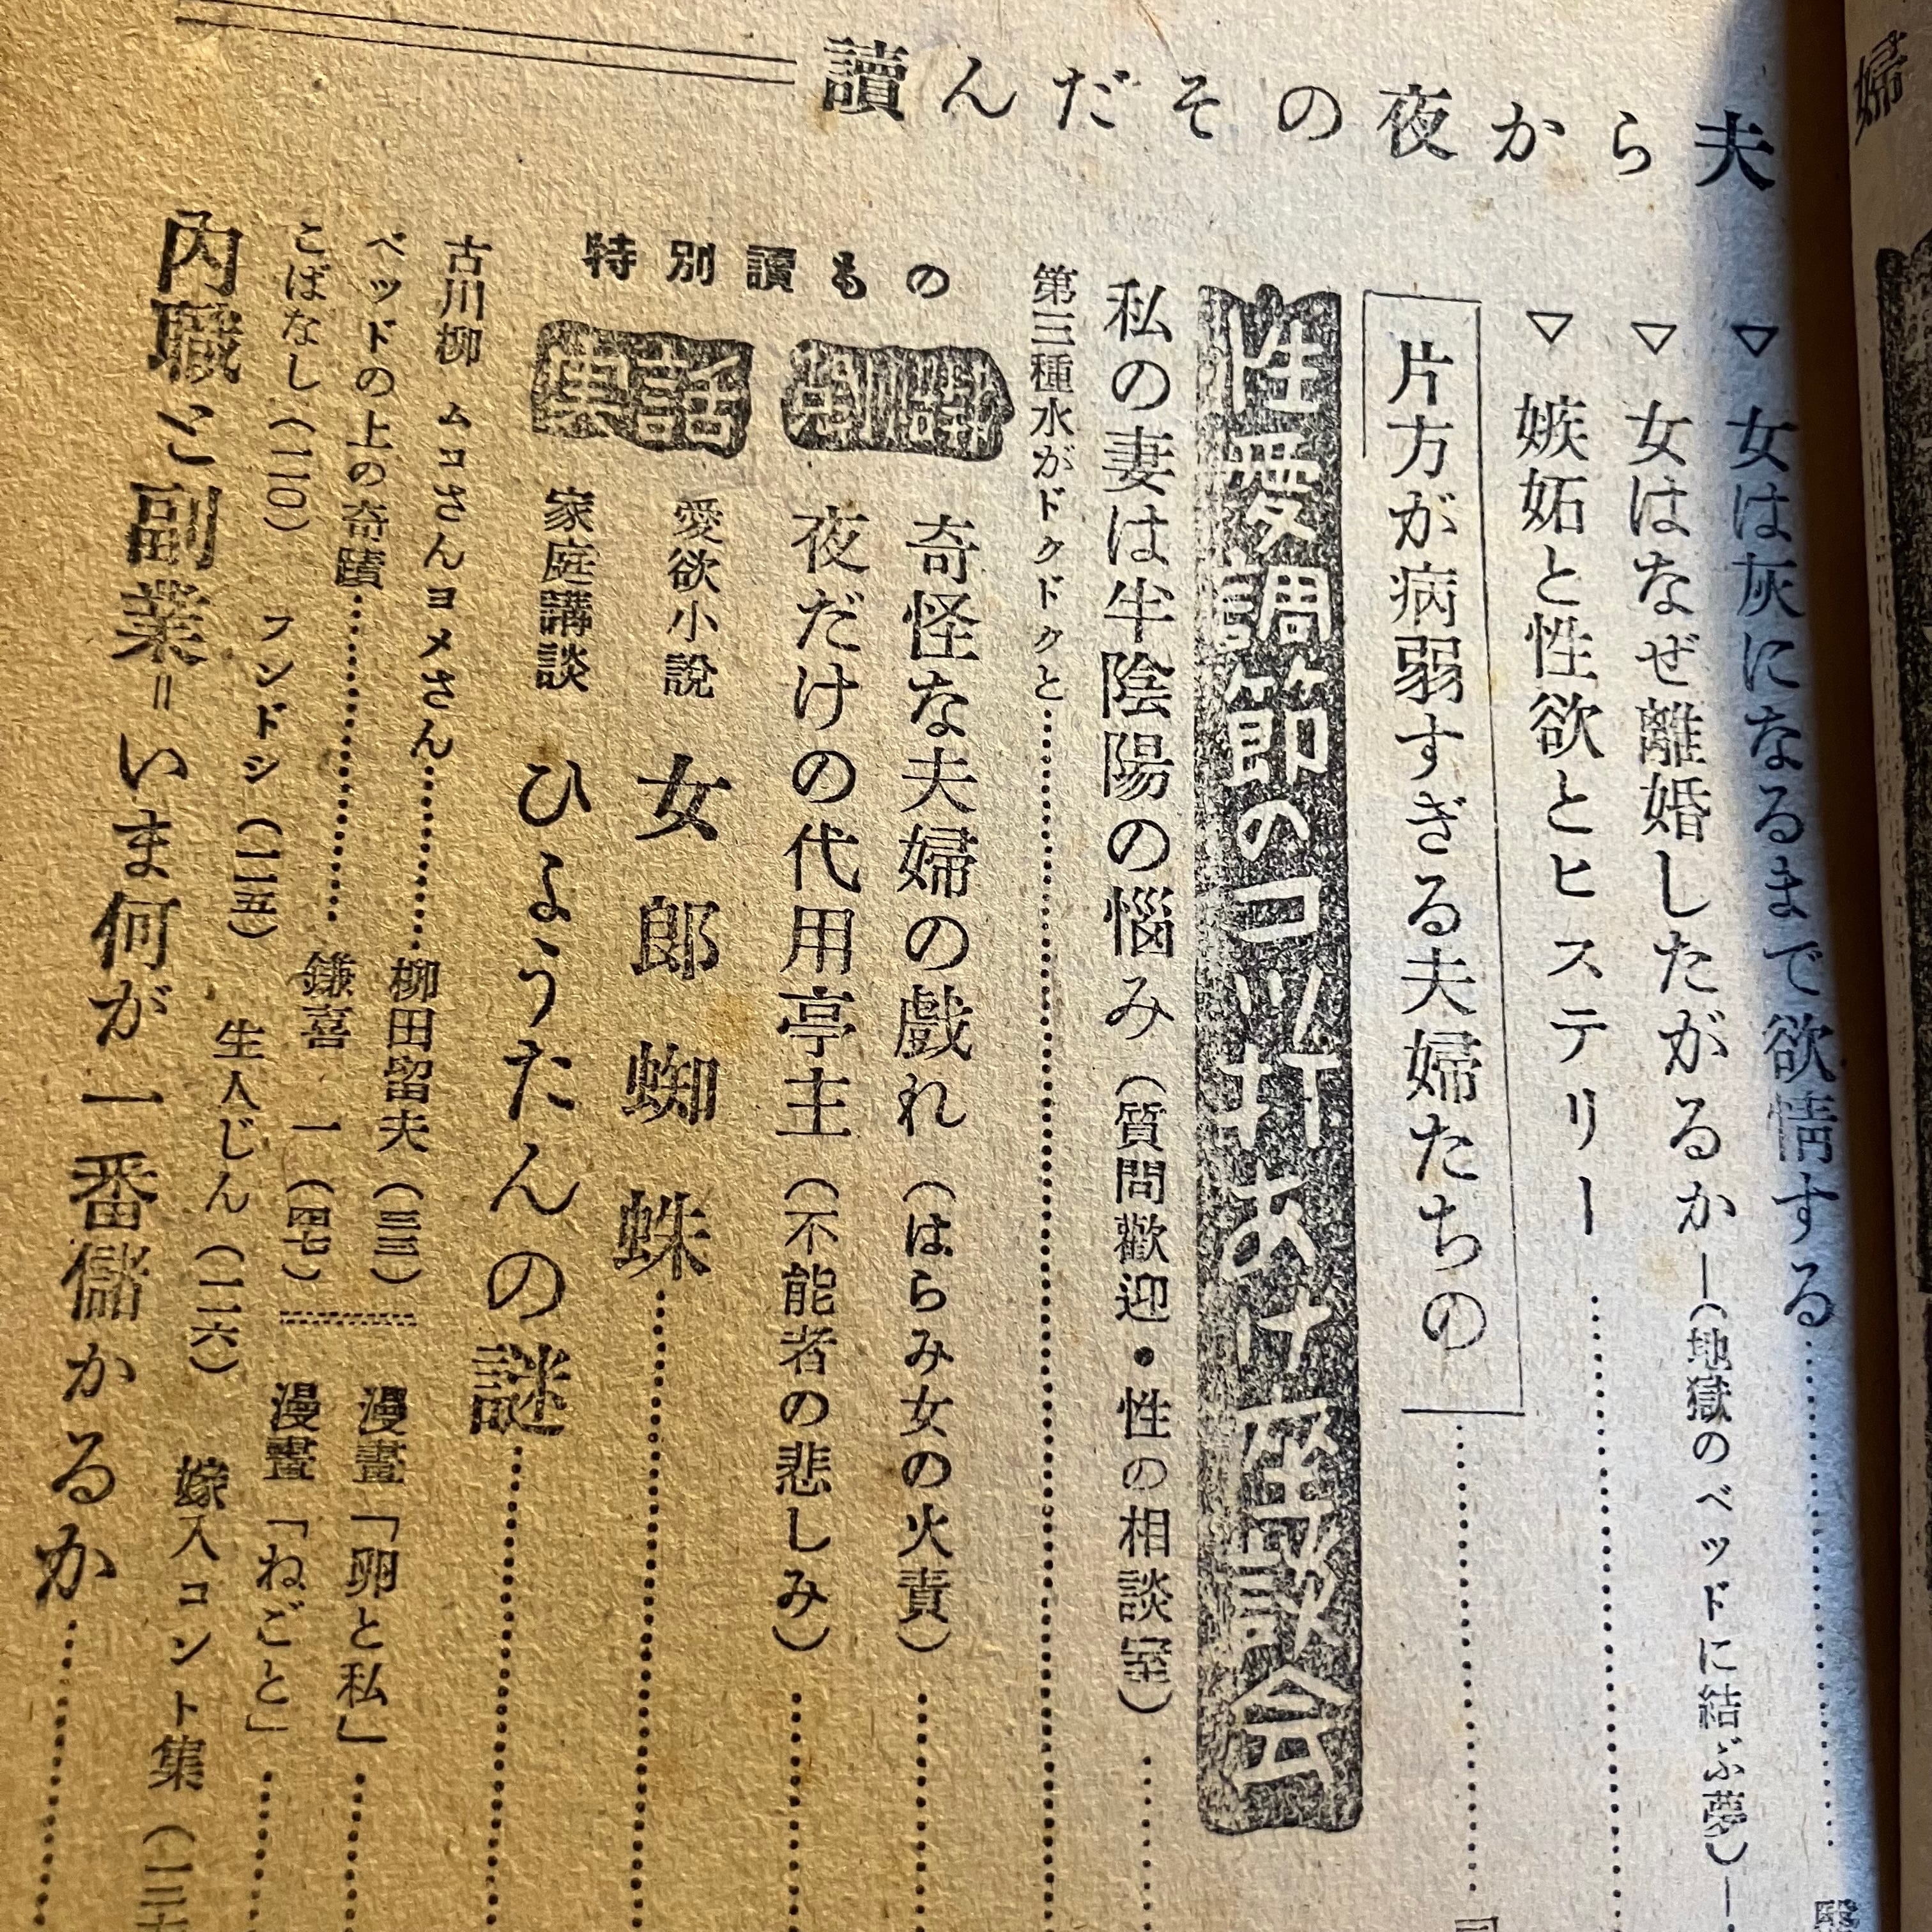 讀んだその夜から夫
婦
▽女は灰になるまで欲情する
▽女はなぜ離婚したがるか―(地獄のベッドに結ぶ夢)―
▽嫉妬と性欲とヒステリー
片方が病弱すぎる夫婦たちの
性愛調節のコツ打あけ座談会
私の妻は半陰陽の悩み(質問歡迎・性の相談室)
第三種水がドクドクと
特別讀もの
奇怪な夫婦の戯れ(はらみ女の火責)
夜だけの代用亭主(不能者の悲しみ)
愛欲小說 女郎蜘蛛
家庭講談 ひょうたんの謎
古川柳 ムコさんヨメさん 柳田留夫(三三)
漫畫「卵と私」
ベッドの上の奇蹟 鎌喜一(四七)
漫畫「ねごと」
こばなし(二〇) フンドシ(一一五) 生人じん(一二六) 嫁入コント集
內職と副業=いま何が一番儲かるか